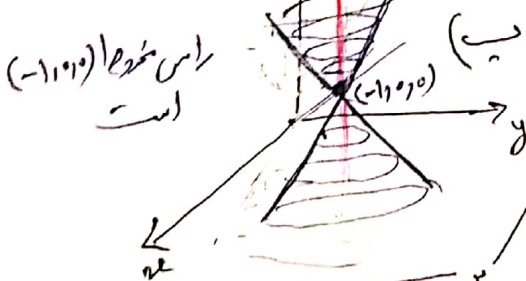 ب)
راس مخروط (-1,0,0)
است
(-1,0,0)
y
x